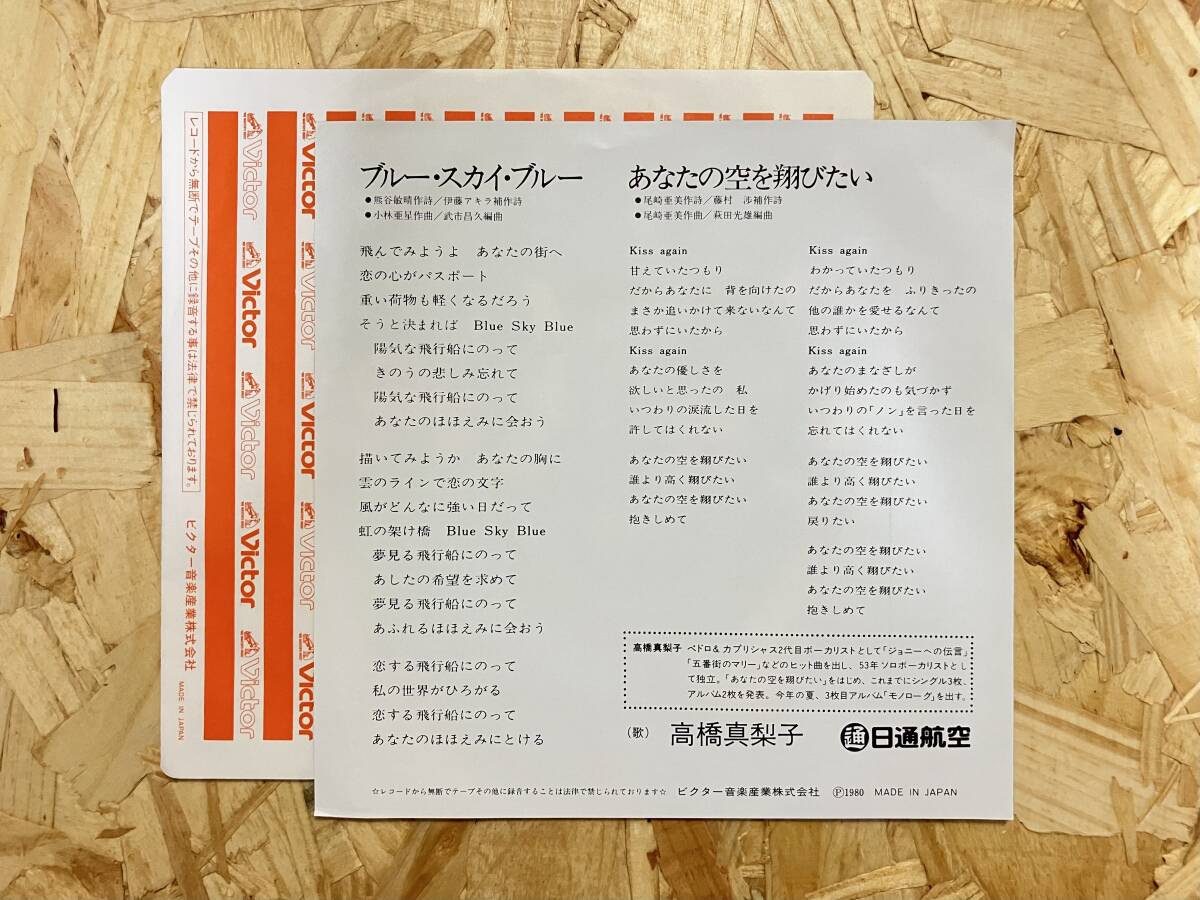 ブルー・スカイ・ブルー
●熊谷敏晴作詩／伊藤アキラ補作詩
●小林亜星作曲／武市昌久編曲
飛んでみようよ　あなたの街へ
恋の心がパスポート
重い荷物も軽くなるだろう
そうと決まれば　Blue Sky Blue
陽気な飛行船にのって
きのうの悲しみ忘れて
陽気な飛行船にのって
あなたのほほえみに会おう
描いてみようか　あなたの胸に
雲のラインで恋の文字
風がどんなに強い日だって
虹の架け橋　Blue Sky Blue
夢見る飛行船にのって
あしたの希望を求めて
夢見る飛行船にのって
あふれるほほえみに会おう
恋する飛行船にのって
私の世界がひろがる
恋する飛行船にのって
あなたのほほえみにとける
あなたの空を翔びたい
●尾崎亜美作詩／藤村　渉補作詩
●尾崎亜美作曲／萩田光雄編曲
Kiss again
甘えていたつもり
だからあなたに　背を向けたの
まさか追いかけて来ないなんて
思わずにいたから
Kiss again
あなたの優しさを
欲しいと思ったの　私
いつわりの涙流した日を
許してはくれない
あなたの空を翔びたい
誰より高く翔びたい
あなたの空を翔びたい
抱きしめて
Kiss again
わかっていたつもり
だからあなたを　ふりきったの
他の誰かを愛せるなんて
思わずにいたから
Kiss again
あなたのまなざしが
かげり始めたのも気づかず
いつわりの「ノン」を言った日を
忘れてはくれない
あなたの空を翔びたい
誰より高く翔びたい
あなたの空を翔びたい
戻りたい
あなたの空を翔びたい
誰より高く翔びたい
あなたの空を翔びたい
抱きしめて
高橋真梨子　ペドロ＆カプリシャス2代目ボーカリストとして「ジョニーへの伝言」
「五番街のマリー」などのヒット曲を出し、53年ソロボーカリストとし
て独立。「あなたの空を翔びたい」をはじめ、これまでにシングル3枚、
アルバム2枚を発表。今年の夏、3枚目アルバム「モノローグ」を出す。
（歌）　高橋真梨子　通 日通航空
☆レコードから無断でテープその他に録音することは法律で禁じられております☆　ビクター音楽産業株式会社　Ⓟ1980　MADE IN JAPAN
レコードから無断でテープその他に録音する事は法律で禁じられております。
ビクター音楽産業株式会社
MADE IN JAPAN
Victor
Victor
Victor
Victor
Victor
Victor
Victor
Victor
Victor
Victor